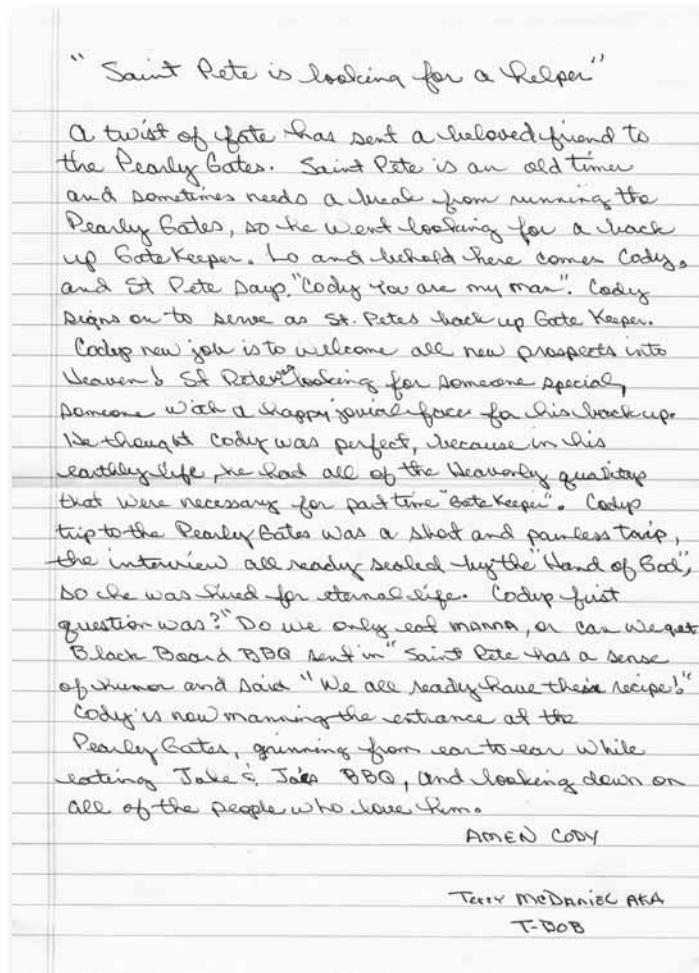 "Saint Pete is looking for a helper"
A twist of fate has sent a beloved friend to
the Pearly Gates. Saint Pete is an old timer
and sometimes needs a break from running the
Pearly Gates, so he went looking for a back
up Gate Keeper. Lo and behold here comes Cody,
and St Pete says, "Cody you are my man". Cody
signs on to serve as St. Petes back up Gate Keeper.
Codys new job is to welcome all new prospects into
Heaven! St Pete was looking for someone special,
someone with a happy jovial face for his back up.
He thought Cody was perfect, because in his
earthly life, he had all of the Heavenly qualitys
that were necessary for part time "Gate Keeper". Codys
trip to the Pearly Gates was a short and painless trip,
the interview all ready sealed by the "Hand of God",
so he was hired for eternal life. Codys first
question was? "Do we only eat MANNA, or can we get
Black Board BBQ sent in" Saint Pete has a sense
of humor and said "We all ready have their recipe!"
Cody is now manning the entrance at the
Pearly Gates, grinning from ear to ear while
eating Jake & Joes BBQ, and looking down on
all of the people who love him.
AMEN CODY
Terry McDANiEL AKA
T-BOB